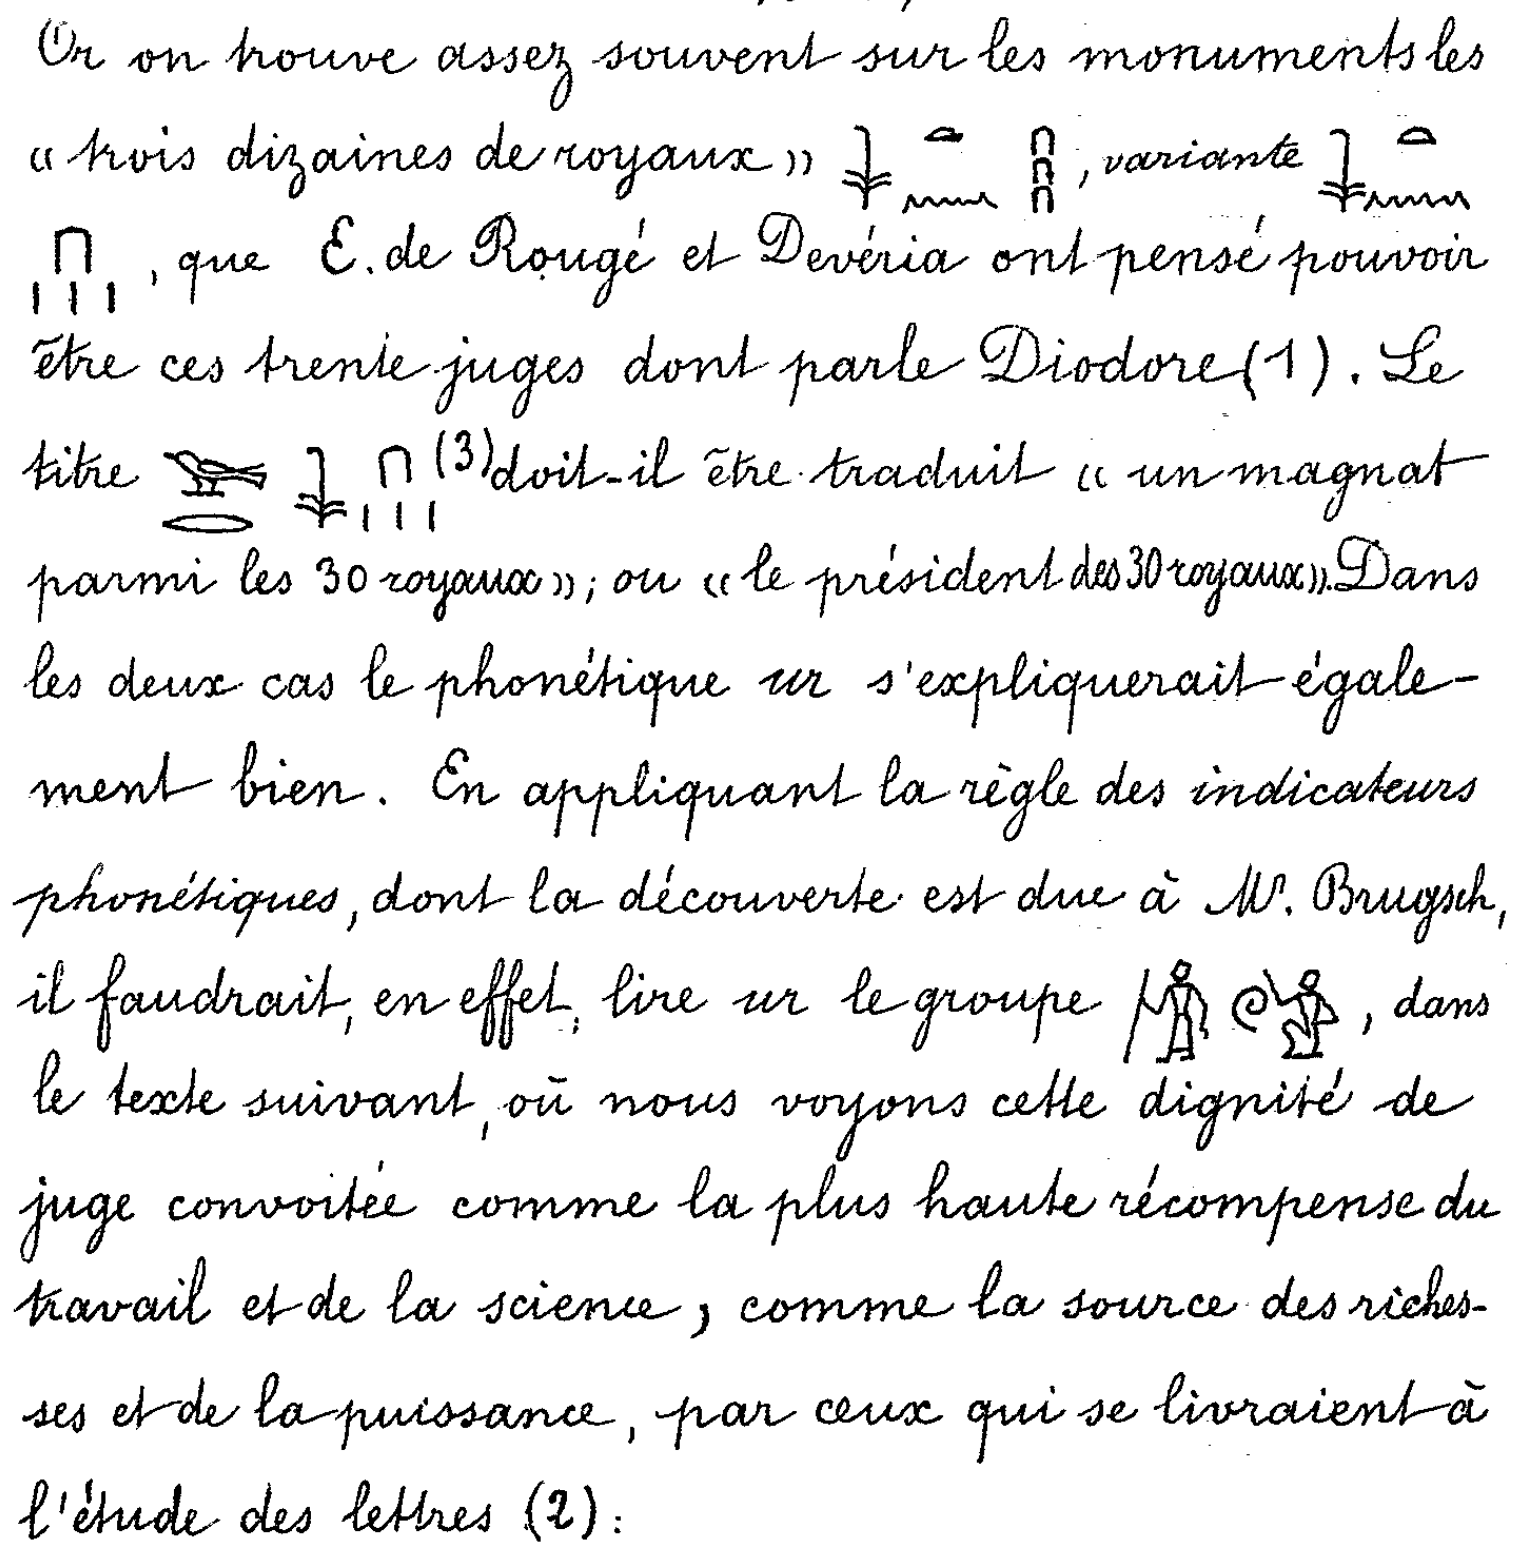 Or on trouve assez souvent sur les monuments les
« trois dizaines de royaux » 𓇓 𓏏 𓈖 𓎆𓎆𓎆, variante 𓇓 𓏏 𓈖
𓎆 𓏥, que E. de Rougé et Devéria ont pensé pouvoir
être ces trente juges dont parle Diodore (1). Le
titre 𓅨 𓂋 𓇓 𓎆 𓏥 (3) doit-il être traduit « un magnat
parmi les 30 royaux »; ou « le président des 30 royaux ». Dans
les deux cas le phonétique ur s'expliquerait égale-
ment bien. En appliquant la règle des indicateurs
phonétiques, dont la découverte est due à Mr. Brugsch,
il faudrait, en effet, lire ur le groupe 𓀗 𓏲 𓀀, dans
le texte suivant, où nous voyons cette dignité de
juge convoitée comme la plus haute récompense du
travail et de la science, comme la source des riches-
ses et de la puissance, par ceux qui se livraient à
l'étude des lettres (2):